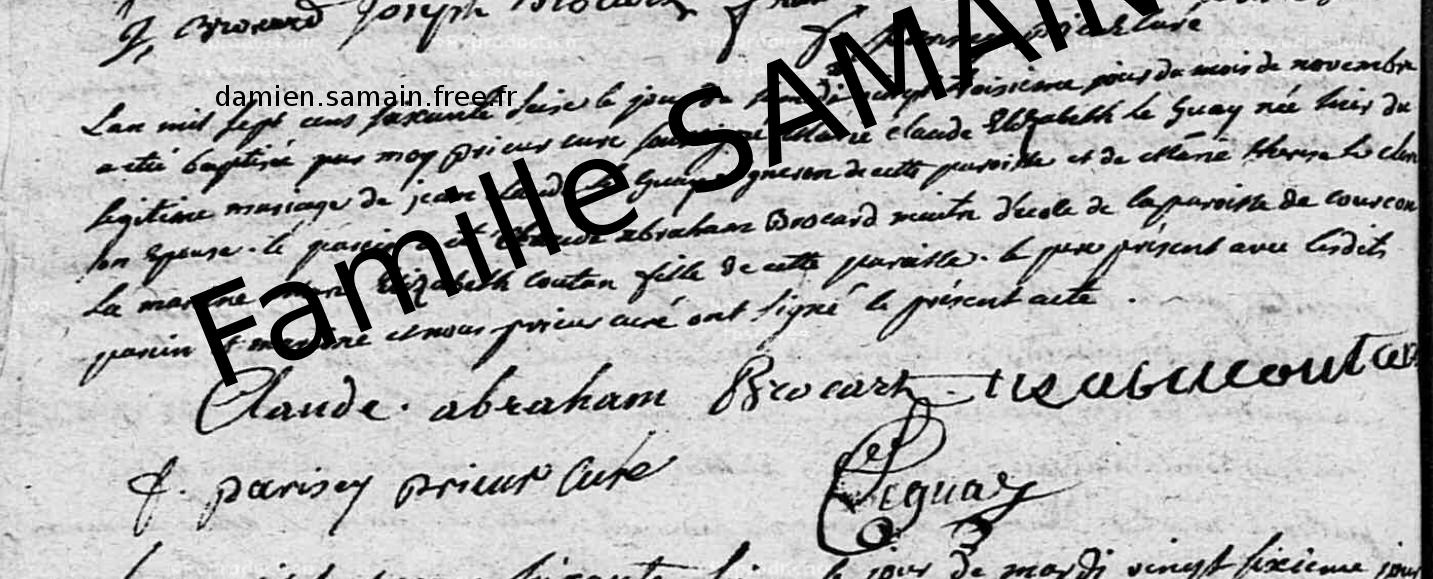 J. Brocard Joseph Brocard
prieur curé
damien.samain.free.fr
Famille SAMAIN
Lan mil sept cens soixante seise le jour du vingt troisieme jour du mois de novembre
a été baptisée par moy prieur curé soussigné Marie Claude Elizabeth le Guay née hier du
legitime mariage de jean le Guay de cette paroisse et de Marie therese le cler
son Epouse. le parein a été Claude abraham Brocard maitre d'ecole de la paroisse de courcon
la mareine Elizabeth Coutan fille de cette paroisse. le pere présent avec lesdits
parein et mareine et nous prieur curé ont signé le présent acte.
Claude. abraham Brocart
f. parisey prieur Curé
Leguay
le jour de mardi vingt sixieme jour